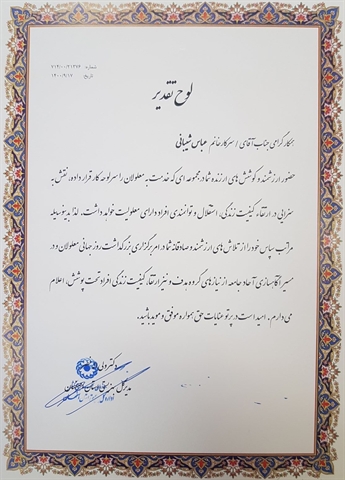 شماره ۷۱۴/۰۰/۲۱۳۷۴
تاریخ ۱۴۰۰/۹/۱۷
لوح تقدیر
همکار گرامی جناب آقای / سرکار خانم عباس شیبانی
حضور ارزشمند و کوشش های ارزنده شما در مجموعه ای که خدمت به معلولان را سرلوحه کار قرار داده، نقش به
سزایی در ارتقاء کیفیت زندگی، استقلال و توانمندی افراد دارای معلولیت خواهد داشت. لذا بدینوسیله
مراتب سپاس خود را از تلاش های ارزشمند و صادقانه شما در امر برگزاری بزرگداشت روز جهانی معلولان و در
مسیر آگاهسازی آحاد جامعه از نیازهای گروه هدف و نیز ارتقاء کیفیت زندگی افراد تحت پوشش، اعلام
می دارم. امید است در پرتو عنایات حق همواره موفق و موید باشید.
دکتر ولی
مدیر کل بهزیستی